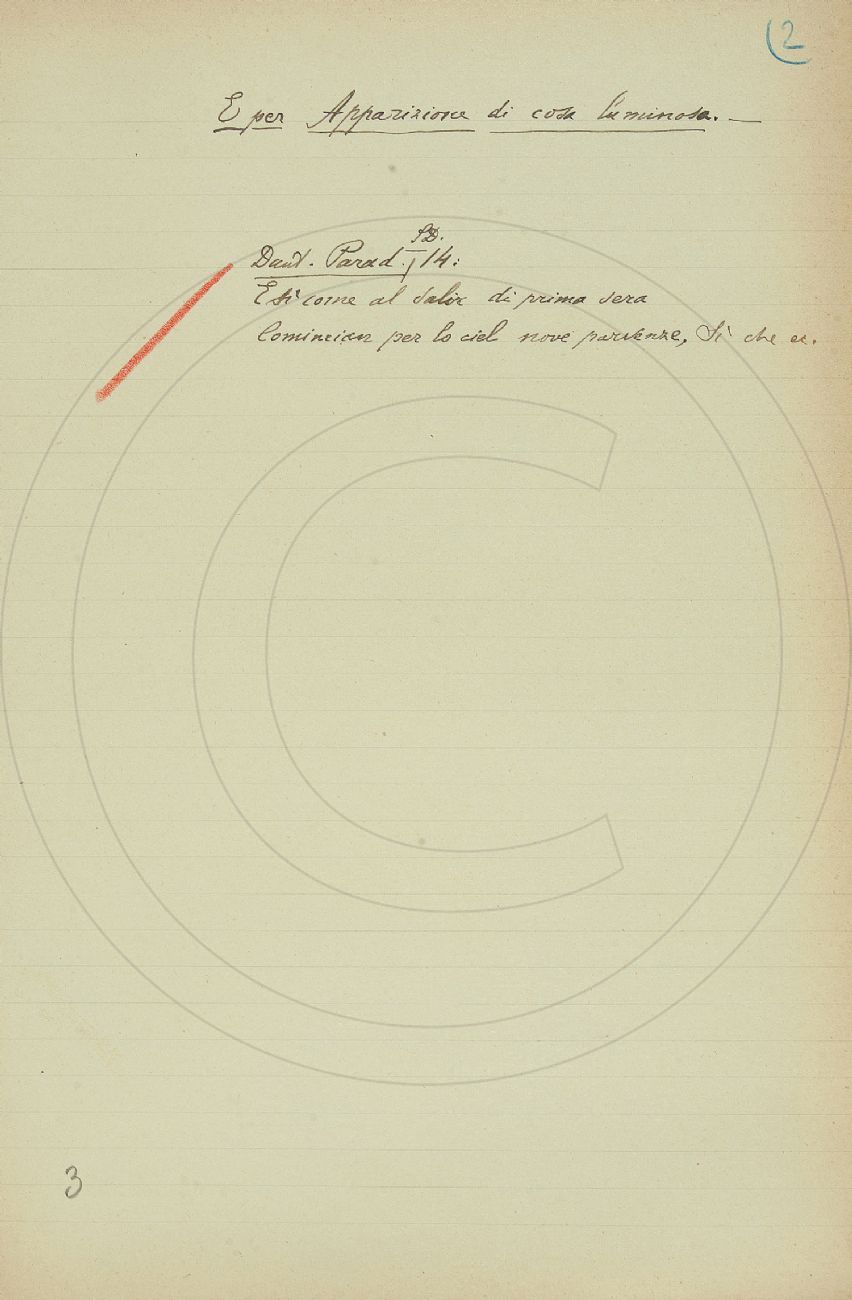 2
E per Apparizione di cosa luminosa. —
SD.
Dant. Parad. 14:
E sì come al salir di prima sera
Comincian per lo ciel nove parvenze, Sì che ec.
3